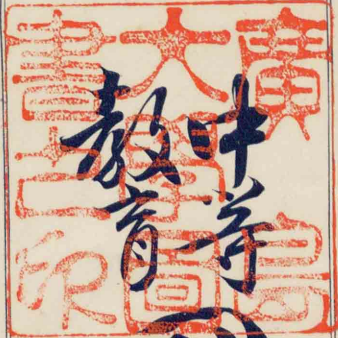 廣島
大學圖
書之印
中等
教育